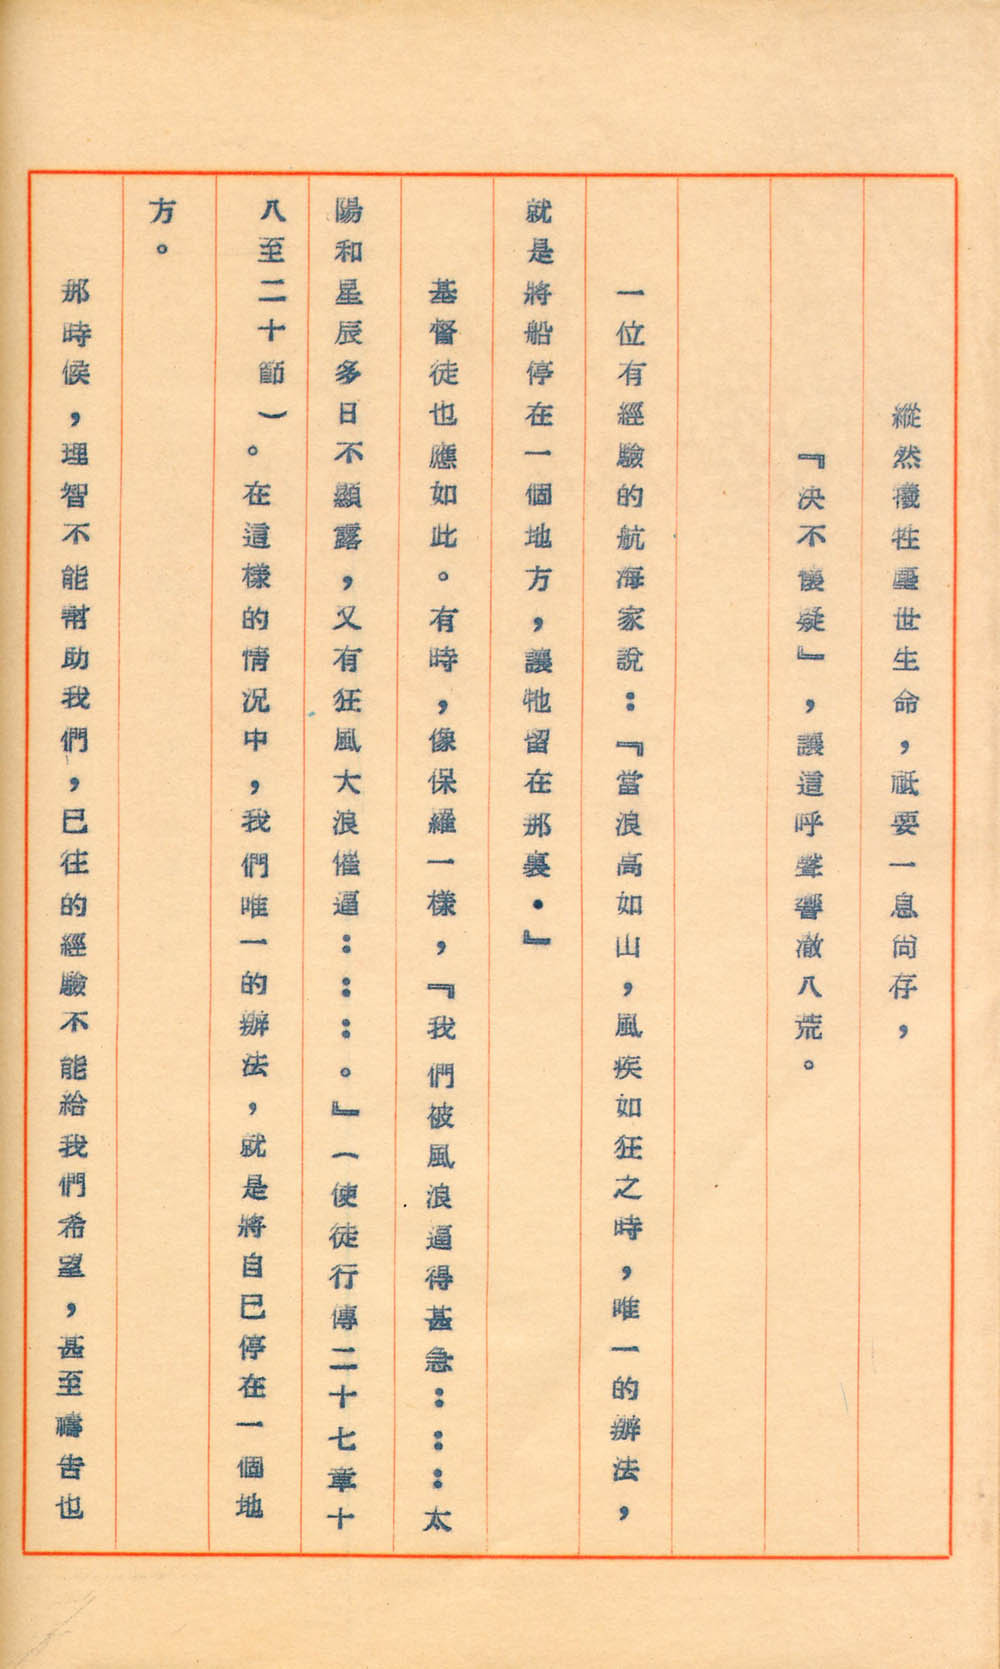 縱然犧牲塵世生命，祇要一息尙存，
『決不懷疑』，讓這呼聲響澈八荒。
一位有經驗的航海家說：『當浪高如山，風疾如狂之時，唯一的辦法，
就是將船停在一個地方，讓牠留在那裏・』
基督徒也應如此。有時，像保羅一樣，『我們被風浪逼得甚急：：：太
陽和星辰多日不顯露，又有狂風大浪催逼：：：。』（使徒行傳二十七章十
八至二十節）。在這樣的情況中，我們唯一的辦法，就是將自已停在一個地
方。
那時候，理智不能幇助我們，已往的經驗不能給我們希望，甚至禱吿也